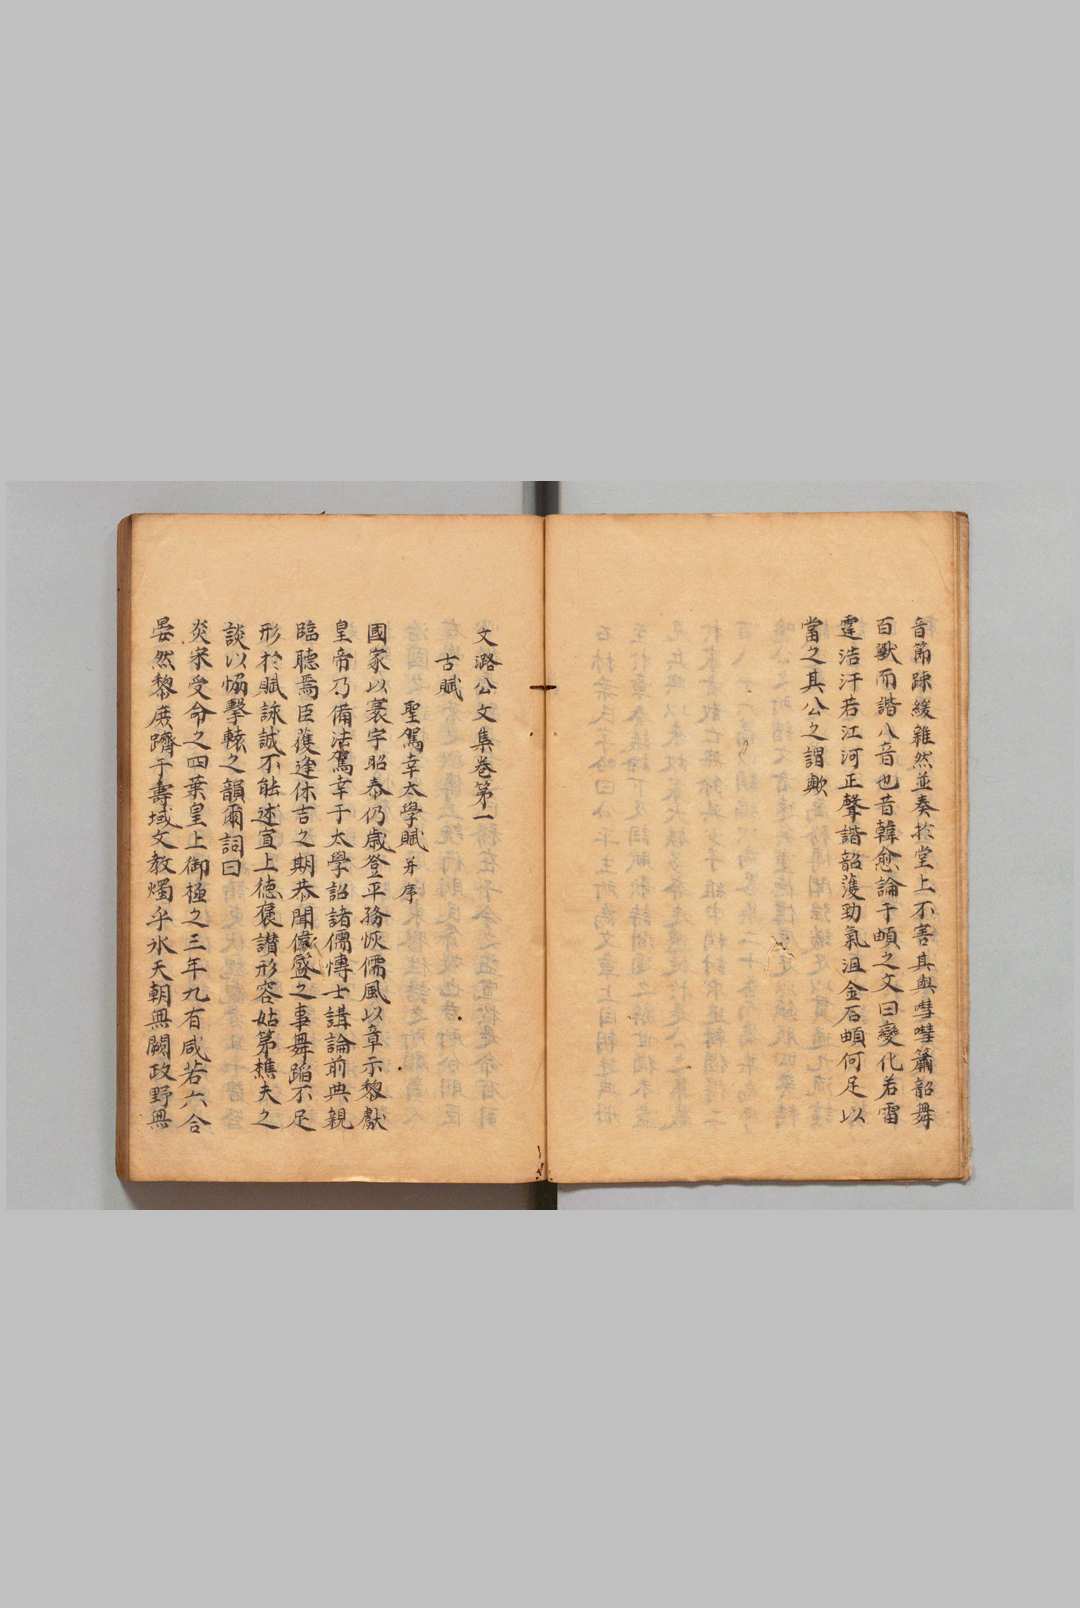 音節踈緩雜然並奏於堂上不害其與嘒嘒簫韶舞
百獸而諧八音也昔韓愈論于頔之文曰變化若雷
霆浩汗若江河正聲諧韶濩勁氣沮金石頔何足以
當之其公之謂歟
文潞公文集卷第一
古賦
聖駕幸太學賦并序
國家以寰宇昭泰仍歲登平務恢儒風以章示黎獻
皇帝乃備法駕幸于太學詔諸儒博士講論前典親
臨聽焉臣獲逢休吉之期恭聞儀盛之事舞蹈不足
形於賦詠誠不能述宣上德褒讃形容姑第樵夫之
談以備擊轅之韻爾詞曰
炎宋受命之四葉皇上御極之三年九有咸若六合
晏然黎庶躋于壽域文教燭乎氷天朝無闕政野無